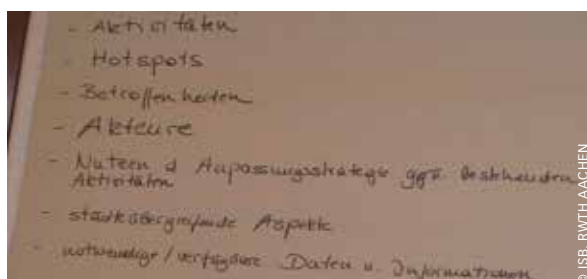 - Aktivitäten
- Hotspots
- Betroffenheiten
- Akteure
- Nutzen d Anpassungsstrategie ggü bestehenden
Aktivitäten
- stadtübergreifende Aspekte
- notwendige/verfügbare Daten u. Informationen
© ISB RWTH AACHEN